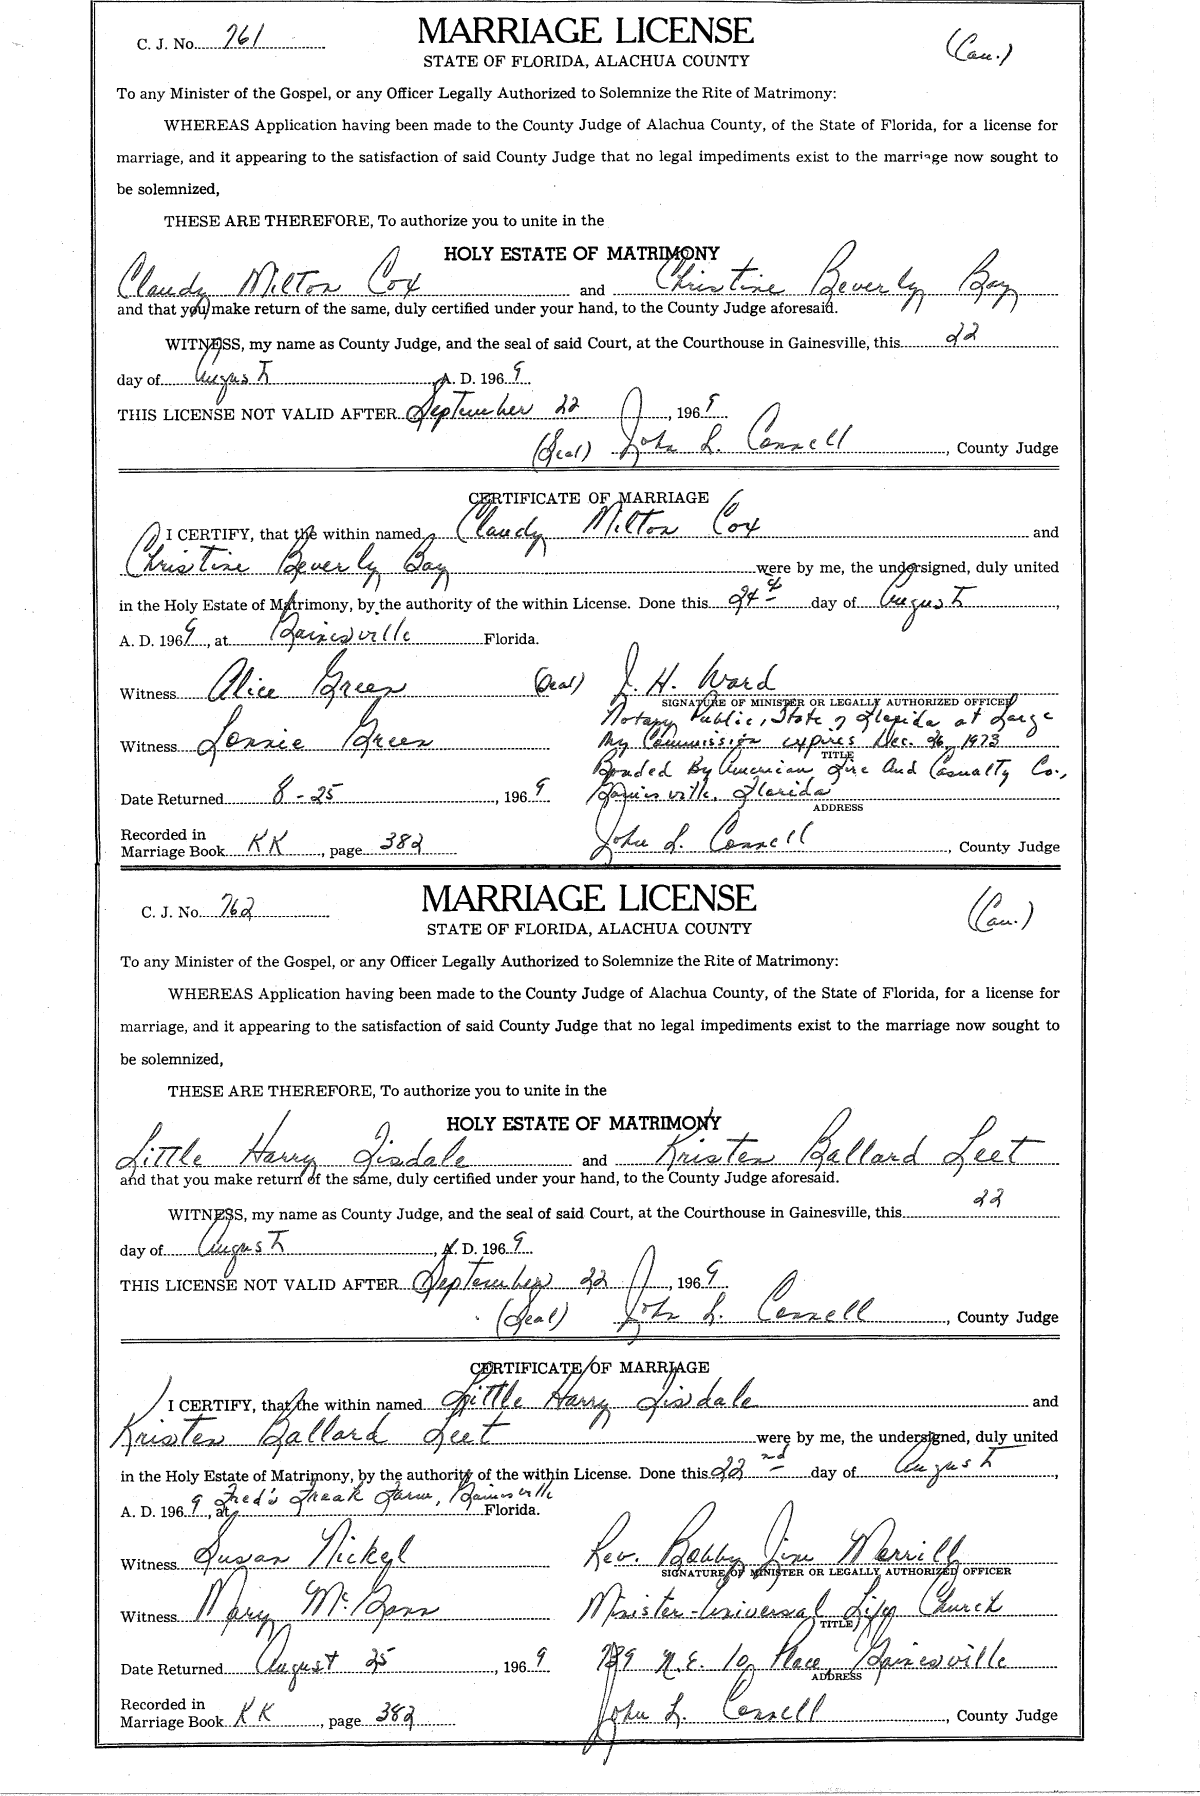 C. J. No. 761
MARRIAGE LICENSE
(Cau.)
STATE OF FLORIDA, ALACHUA COUNTY
To any Minister of the Gospel, or any Officer Legally Authorized to Solemnize the Rite of Matrimony:
WHEREAS Application having been made to the County Judge of Alachua County, of the State of Florida, for a license for
marriage, and it appearing to the satisfaction of said County Judge that no legal impediments exist to the marriage now sought to
be solemnized,
THESE ARE THEREFORE, To authorize you to unite in the
HOLY ESTATE OF MATRIMONY
Claudy Milton Cox and Christine Beverly Bay
and that you make return of the same, duly certified under your hand, to the County Judge aforesaid.
WITNESS, my name as County Judge, and the seal of said Court, at the Courthouse in Gainesville, this 22
day of August, A. D. 1969.
THIS LICENSE NOT VALID AFTER September 22, 1969
(Seal) John L. Connell, County Judge
CERTIFICATE OF MARRIAGE
I CERTIFY, that the within named Claudy Milton Cox and
Christine Beverly Bay were by me, the undersigned, duly united
in the Holy Estate of Matrimony, by the authority of the within License. Done this 24th day of August,
A. D. 1969, at Gainesville Florida.
Witness Alice Green (Seal) J. H. Ward
SIGNATURE OF MINISTER OR LEGALLY AUTHORIZED OFFICER
Notary Public, State of Florida at Large
Witness Lonnie Green My Commission expires Dec. 26, 1973
TITLE
Bonded By American Fire And Casualty Co.,
Date Returned 8-25, 1969 Gainesville, Florida
ADDRESS
Recorded in
Marriage Book KK, page 382 John L. Connell, County Judge
C. J. No. 762
MARRIAGE LICENSE
(Cau.)
STATE OF FLORIDA, ALACHUA COUNTY
To any Minister of the Gospel, or any Officer Legally Authorized to Solemnize the Rite of Matrimony:
WHEREAS Application having been made to the County Judge of Alachua County, of the State of Florida, for a license for
marriage, and it appearing to the satisfaction of said County Judge that no legal impediments exist to the marriage now sought to
be solemnized,
THESE ARE THEREFORE, To authorize you to unite in the
HOLY ESTATE OF MATRIMONY
Little Harry Tisdale and Kristen Ballard Leet
and that you make return of the same, duly certified under your hand, to the County Judge aforesaid.
WITNESS, my name as County Judge, and the seal of said Court, at the Courthouse in Gainesville, this 22
day of August, A. D. 1969.
THIS LICENSE NOT VALID AFTER September 22, 1969
(Seal) John L. Connell, County Judge
CERTIFICATE OF MARRIAGE
I CERTIFY, that the within named Little Harry Tisdale and
Kristen Ballard Leet were by me, the undersigned, duly united
in the Holy Estate of Matrimony, by the authority of the within License. Done this 22nd day of August,
A. D. 1969, at Fred's Freak Farm, Gainesville Florida.
Witness Susan Nickel Rev. Bobby Jim Merrill
SIGNATURE OF MINISTER OR LEGALLY AUTHORIZED OFFICER
Witness Mary McGann Minister-Universal Life Church
TITLE
Date Returned August 25, 1969 739 N.E. 10 Place, Gainesville
ADDRESS
Recorded in
Marriage Book KK, page 382 John L. Connell, County Judge